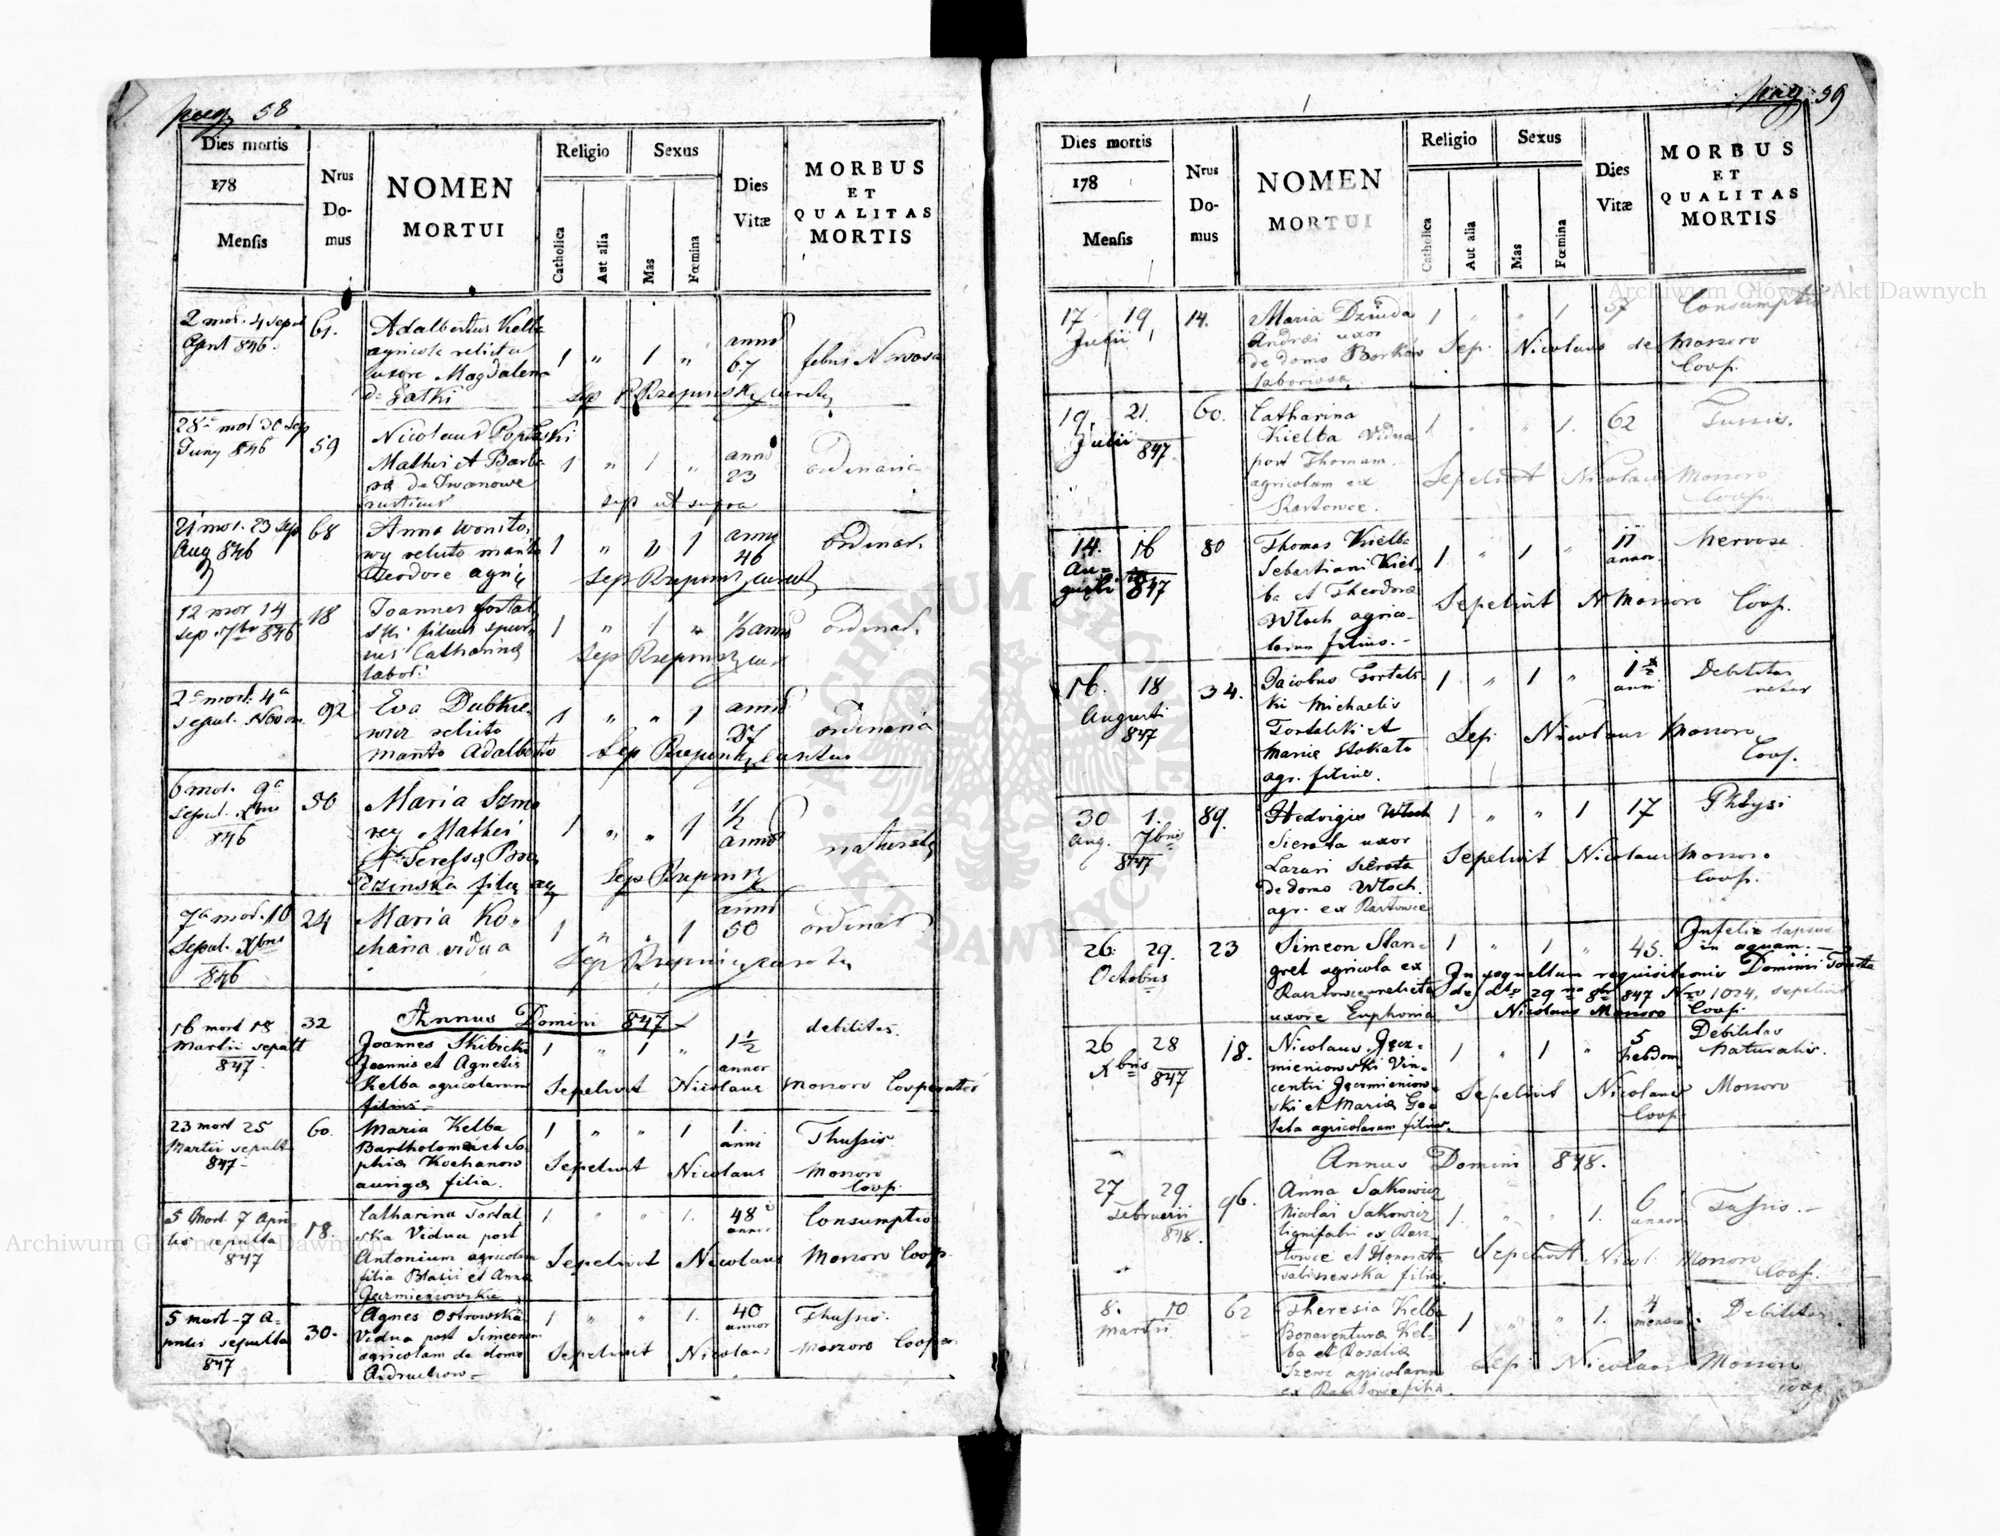 pag. 58
Dies mortis
178
Mensis
Nrus
Do-
mus
NOMEN
MORTUI
Religio
Catholica
Aut alia
Sexus
Mas
Fœmina
Dies
Vitæ
MORBUS
ET
QUALITAS
MORTIS
2 mor. 4 sepul
April 846.
61.
Adalbertus Kelba
agricola relicta
uxore Magdalena
de Gatki
1 " 1 "
anno
67
febris Nervosa
Sep Rzepinsky
28 mor 30 Sep
Juny 846
59
Nicolaus
Mathei et Barba
ra de Iwanowe
rusticus
1 " 1 "
anno
23
ordinaria
sep ut supra
21 mor. 23 sep
Aug 846
68
Anna
relicto marito
Teodore
1 " " 1
anno
46
ordinar.
12 mor 14
sep 7br 846
18
Joannes Fortal
ski filius spur
ius Catharina
labor.
1 " 1 "
½ anno
ordinar.
2 mort. 4
sepul. Novem.
92
Eva Dubkie
wicz relicto
marito Adalberto
1 " " 1
anno
37
ordinaria
6 mor. 9
sepul. Xbris
846
50
Maria Szmo
rey Mathei
et Teressa
1 " " 1
½
anno
7 mor. 10
sepul. Xbris
846
24
Maria Ko-
chana vidua
1 " " 1
anno
50
ordinar.
Annus Domini 847
16 mort 18
Martii sepult
847.
32
Joannes Skibicki
Joannis et Agnetis
Kelba agricolarum
filius.
1 " 1 "
1½
annor
debilitas.
Sepelivit Nicolaus Monoro Cooperator
23 mort 25
Martii sepult
847
60.
Maria Kelba
Bartholomei et So
phia Kochanow
auriga filia.
1 " " 1
1.
anni
Thussis
Sepelivit Nicolaus Monoro
Coop.
5 Mort 7 Apri
lis sepulta
847
18.
Catharina Tortal
ska Vidua post
Antonium agricolam
filia Blasii et Anna
1 " " 1.
48
annor
Consumptio
Sepelivit Nicolaus Monoro Coop.
5 mort 7 A-
prilis sepulta
847
30.
Agnes Ostrowska
Vidua post Simeonem
agricolam de domo
Andruchow
1 " " 1.
40
annor
Thussis.
Sepelivit Nicolaus Monoro Cooper.
pag. 59
Dies mortis
178
Mensis
Nrus
Do-
mus
NOMEN
MORTUI
Religio
Catholica
Aut alia
Sexus
Mas
Fœmina
Dies
Vitæ
MORBUS
ET
QUALITAS
MORTIS
17 19
Julii
14.
Maria Dziuda
Andrei uxor
de domo Borkow
laboriosa.
1 " " 1
57
Consumptio
Sep. Nicolaus de Monoro
Coop.
19 21.
Julii 847.
60.
Catharina
Kielba Vidua
post Thomam
agricolam ex
Rastowce.
1 " " 1.
62
Tussis.
Sepelivit Nicolaus Monoro
Coop.
14. 16
Au-
gusti 847
80
Thomas Kielba
Sebastiani Kiel-
ba et Theodora
Wloch agrico-
larum filius.
1 " 1 "
17
annor.
Nervosa
Sepelivit N Monoro Coop.
16. 18
Augusti
847
34.
Jacobus Tortals
ki Michaelis
Tortalski et
Maria Stokato
agr. filius.
1 " 1 "
anni
Debilitas
Sep. Nicolaus Monoro
Coop.
30 1.
Aug. 7bris
847
89.
Hedvigis Wloch
Sierota uxor
Lazari Sierota
de domo Wloch.
agr. ex Rastowce
1 " " 1
17
Phtysi
Sepelivit Nicolaus Monoro
Coop.
26. 29.
Octobris
23
Simeon Stan-
gret agricola ex
Rasztowce relicta
uxore Euphonia
1 " 1 "
45.
Infelix lapsus
in aquam.
In sequellam requisitionis Domini
de dto 29 8br 847 Nro 1024, sepelivit
Nicolaus Monoro Coop.
26 28
Xbris 847
18.
Nicolaus Jęcz-
mieniowski Vin-
centii Jęczmieniow
ski et Maria
agricolarum filius.
1 " 1 "
5
hebdom
Debilitas
Naturalis.
Sepelivit Nicolaus Monoro
Coop.
Annus Domini 848.
27 29
Februarii
848.
96.
Anna Sakowicz
Nicolai Sakowicz
lignifabri ex Rasz-
towce et Honorata
filia.
1 " " 1.
6
annor
Tussis.
Sepelivit Nicol. Monoro
Coop.
8. 10
Martii
62
Theresia Kelba
Bonaventura Kel-
ba et Rosalia
Szewc agricolarum
ex Rasztowce filia.
1 " " 1.
4
mensium.
Debilitas
Sep. Nicolaus Monoro
Coop
Archiwum Główne Akt Dawnych
Archiwum Główne Akt Dawnych
ARCHIWUM GŁÓWNE AKT DAWNYCH